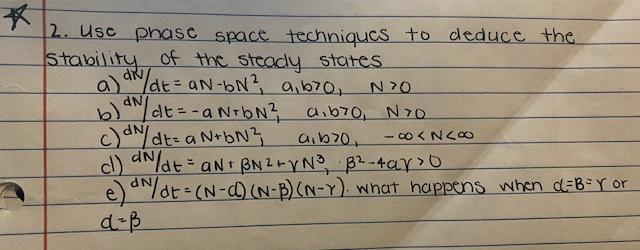 2. Use phase space techniques to deduce the
stability of the steady states
a) dN/dt = aN-bN², a,b>0, N>0
b) dN/dt = -aN+bN², a,b>0, N>0
c) dN/dt = aN+bN², a,b>0, -∞<N<∞
d) dN/dt = αN+βN²+γN³, β²-4αγ>0
e) dN/dt = (N-α)(N-β)(N-γ). what happens when α=β=γ or
α=β